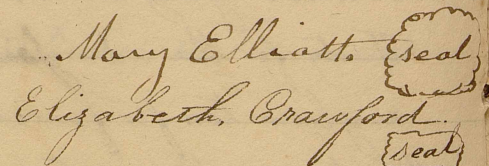 Mary Elliott. seal
Elizabeth. Crawford.
seal